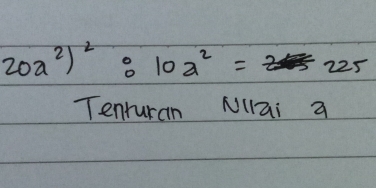 20a²)² : 10a² = 225
Tenturan Nilai a